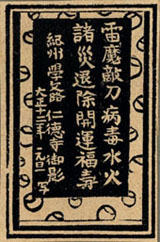 雷魔敵刀病毒水火
諸災退除開運福寿
紀州 學文路 仁徳寺御影
大正十二年 元旦 写